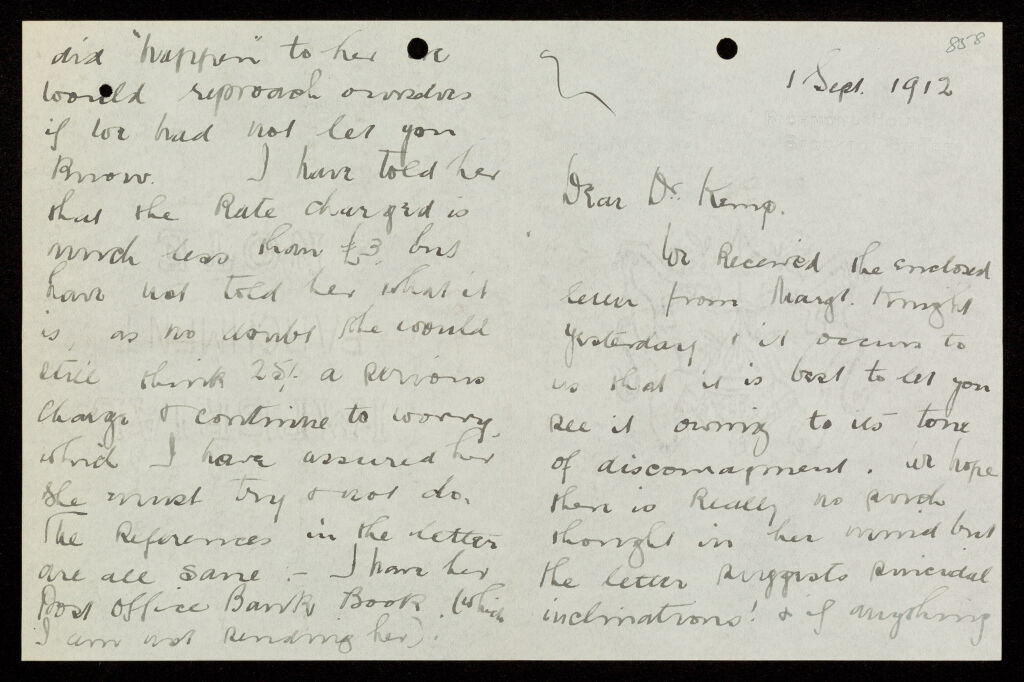 858
1 Sept. 1912
Dear Dr. Kemp.
We received the enclosed
letter from Margt. Knight
yesterday & it occurs to
us that it is best to let you
see it owing to its tone
of discouragement. We hope
there is really no such
thought in her mind but
the letter suggests suicidal
inclinations! & if anything
did "happen" to her we
would reproach ourselves
if we had not let you
know. I have told her
that the Rate charged is
much less than £3, but
have not told her what it
is, as no doubt she would
still think 25/- a serious
charge & continue to worry,
which I have assured her
she must try & not do.
The References in the letter
are all sane. - I have her
Post Office Bank Book. (which
I am not sending her).